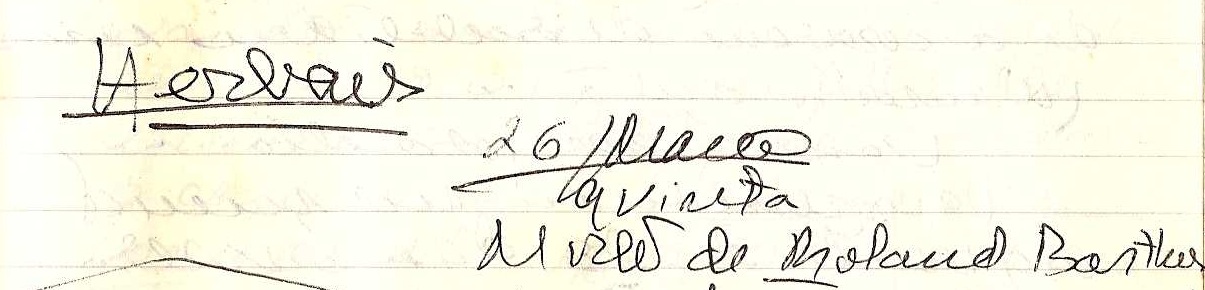 Herbais
26/Março
quinta
de Roland Barthes